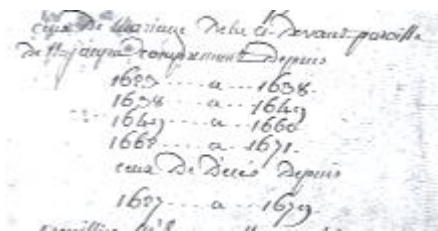 ceux de Mariage de la ci-devant paroisse
de St jacques comprennent Depuis
1623 a 1638.
1638 a 1649
1649 a 1660
1660 a 1671.
ceux De Decés Depuis
1637 a 1679.